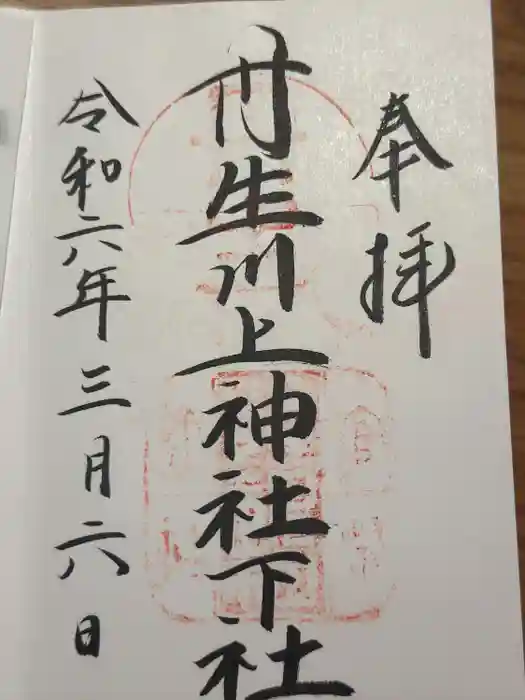 奉拝
丹生川上神社下社
令和六年三月六日